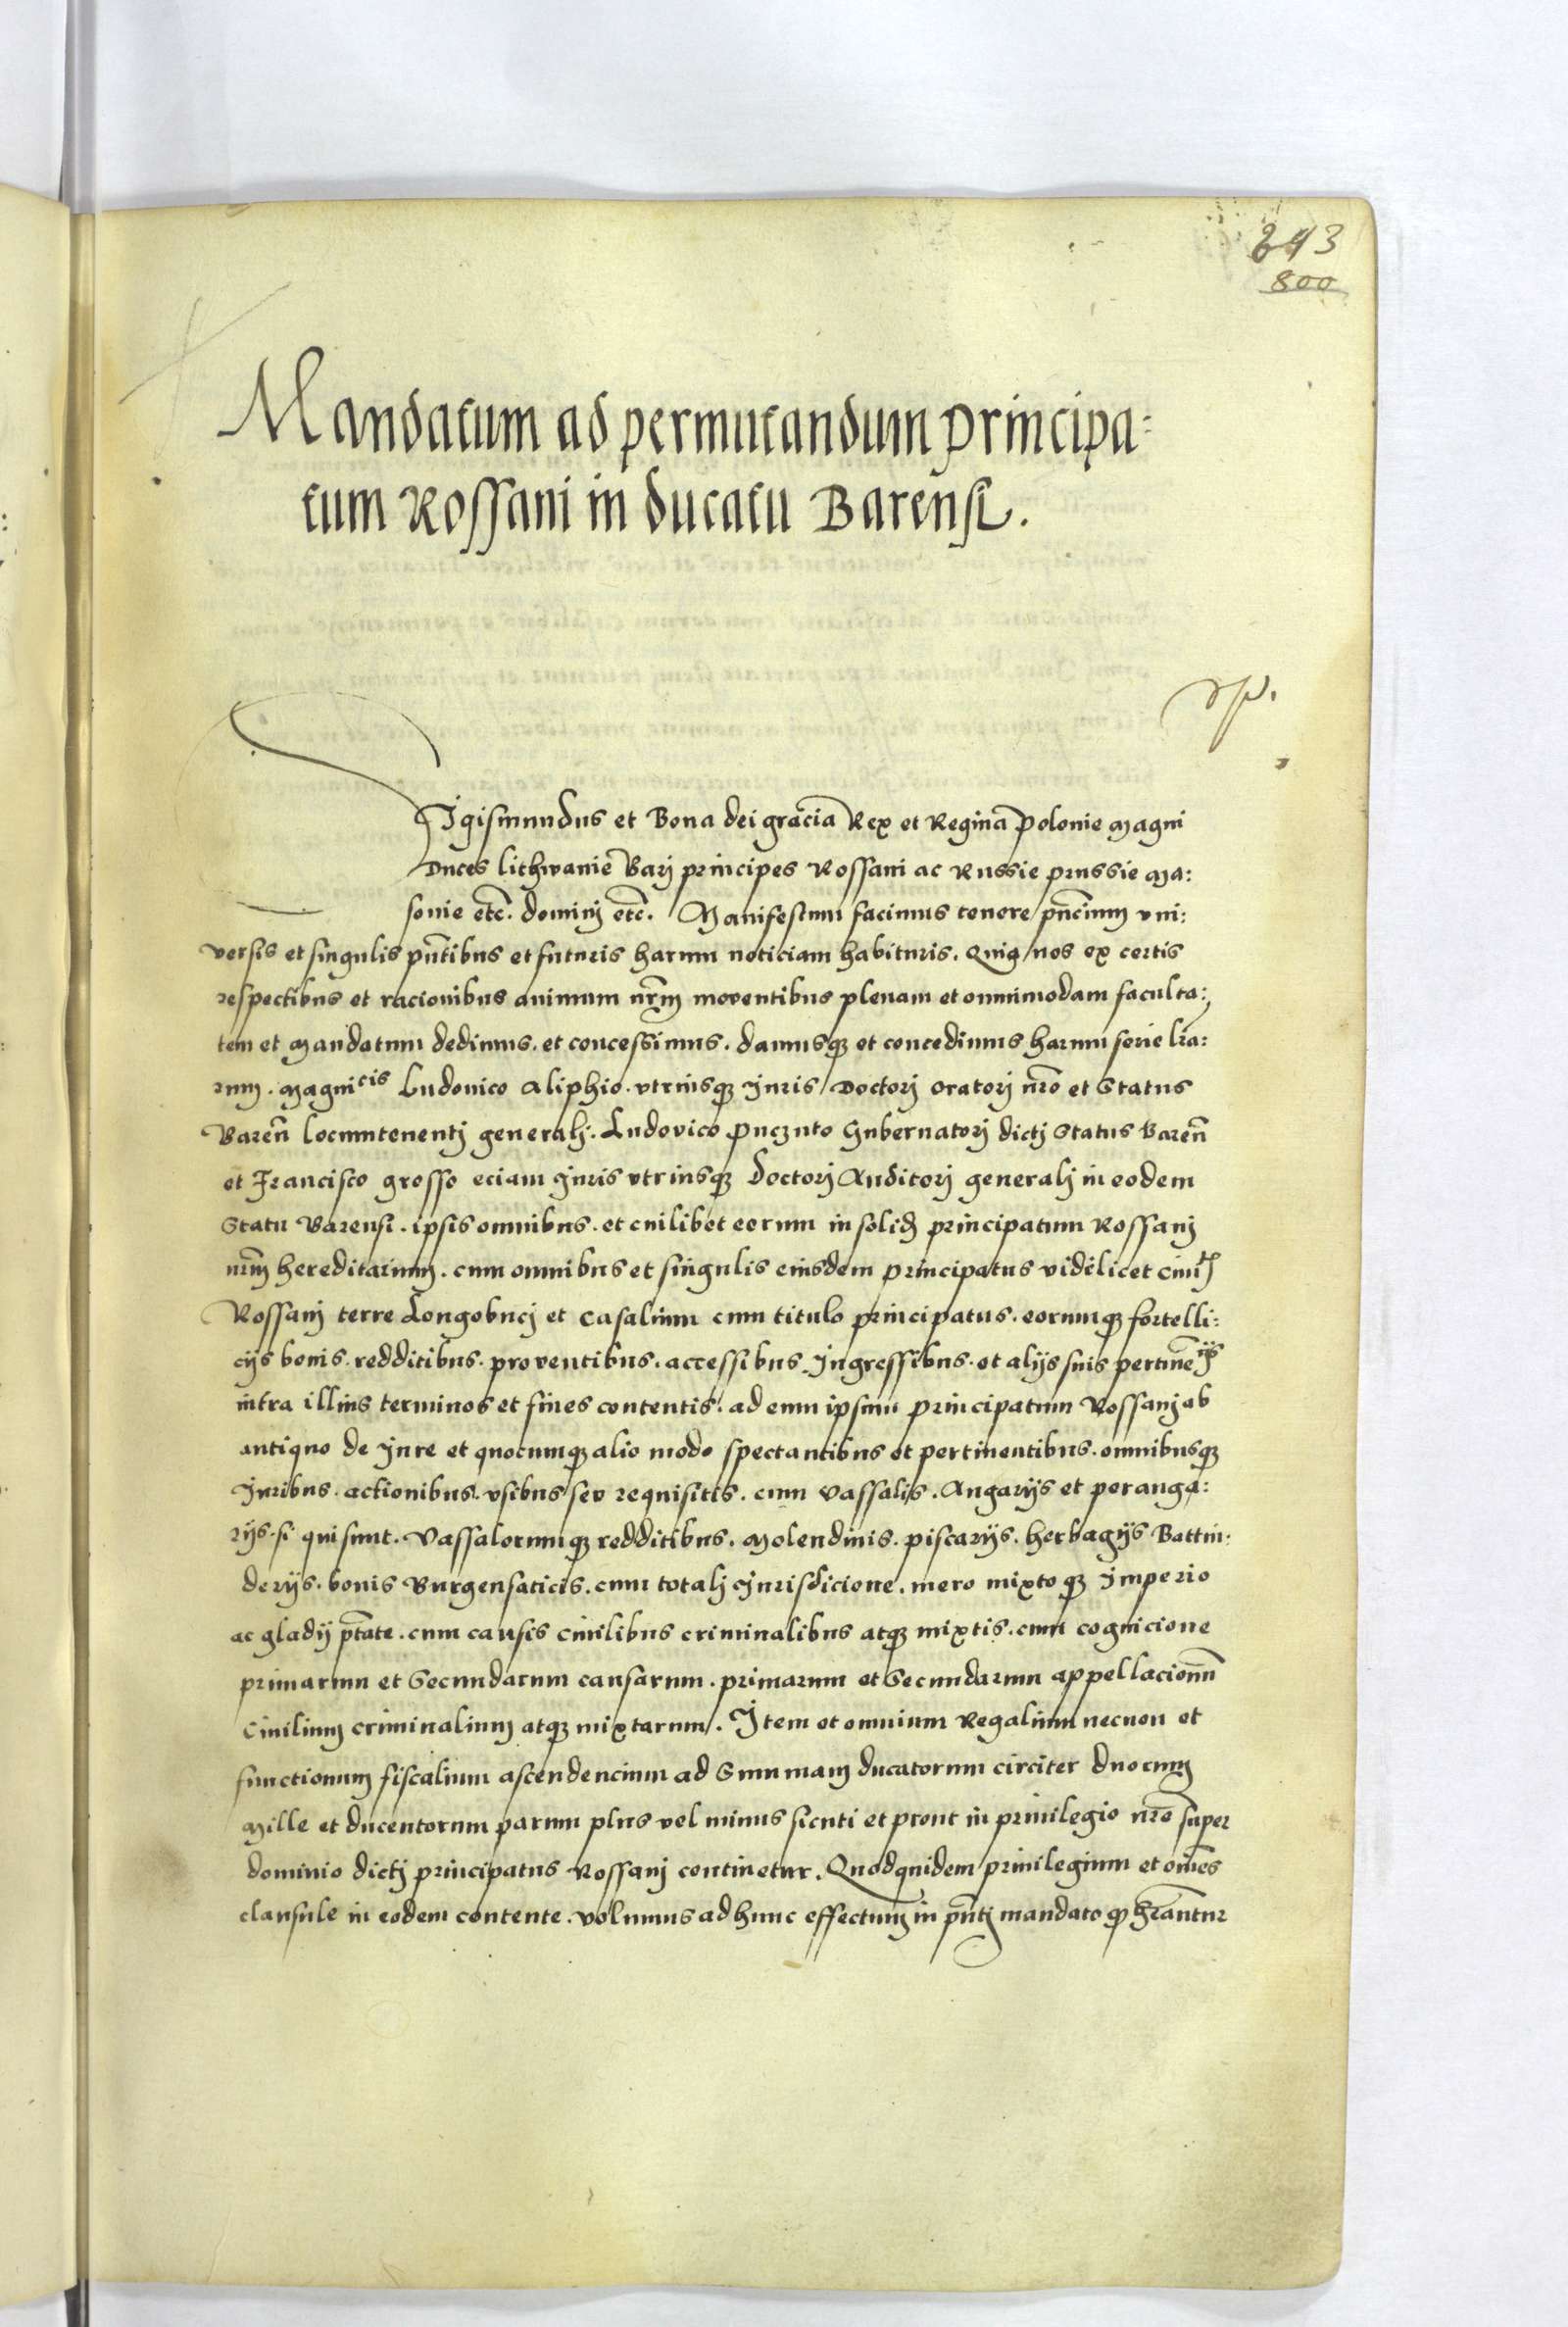 293
800
Mandatum ad permutandum principa=
tum Rossani in ducatu Barensi.
Sigismundus et Bona dei gracia Rex et Regina Polonie Magni
Duces lithwanie Barj principes Rossani ac Russie prussie Ma:
sovie etc̃. dominj etc̃. Manifestum facimus tenore pñcium vni:
versis et singulis pñtibus et futuris harum noticiam habituris. Quia nos ex certis
respectibus et racionibus animum nr̃m moventibus plenam et omnimodam faculta:
tem et Mandatum dedimus. et concessimus. damusq3 et concedimus harum serie lr̃a:
rum. Magnicis Ludovico Aliphio. vtriusq3 Juris Doctorj oratorj nr̃o et Status
Bareñ locumtenentj generalj. Ludovico Puczuto Gubernatorj dictj Status Bareñ
et Francisco grosso eciam Juris vtriusq3 doctorj Auditorj generalj in eodem
Statu Barensi. ipsis omnibus. et cuilibet eorum in solid3 principatum Rossanj
nr̃m hereditarium. cum omnibus et singulis eiusdem principatus videlicet
Rossanj terre Longobucj et Casalium cum titulo principatus. eorumq3 fortelli:
cijs bonis. redditibus. proventibus. accessibus Jngressibus. et alijs suis pertineñijs
intra illius terminos et fines contentis. ad eum ipsum principatum Rossanj ab
antiquo de Jure et quocumq3 alio modo spectantibus et pertinentibus. omnibusq3
Juribus. actionibus. vsibus sev requisitis. cum vassalis. Angarijs et peranga:
rijs. si qui sunt. Vassalorumq3 redditibus. Molendinis. piscarijs. herbagijs Battin:
derijs. bonis Burgensaticis. cum totalj Jurisdicione. mero mixtoq3 Jmperio
ac gladij ptãte. cum causis civilibus criminalibus atq3 mixtis. cum cognicione
primarum et Secundarum causarum. primarum et Secundarum appellacionũ
Civilium criminalium atq3 mixtarum. Jtem et omnium Regalium necnon et
functionum fiscalium ascendencium ad Summam ducatorum circiter duorum
Mille et ducentorum parum plus vel minus sicuti et prout in privilegio nr̃o super
dominio dictj principatus Rossanj continetur. Quodquidem privilegium et om̃es
clausule in eodem contente. volumus ad hunc effectum in pñtj mandato hr̃antur